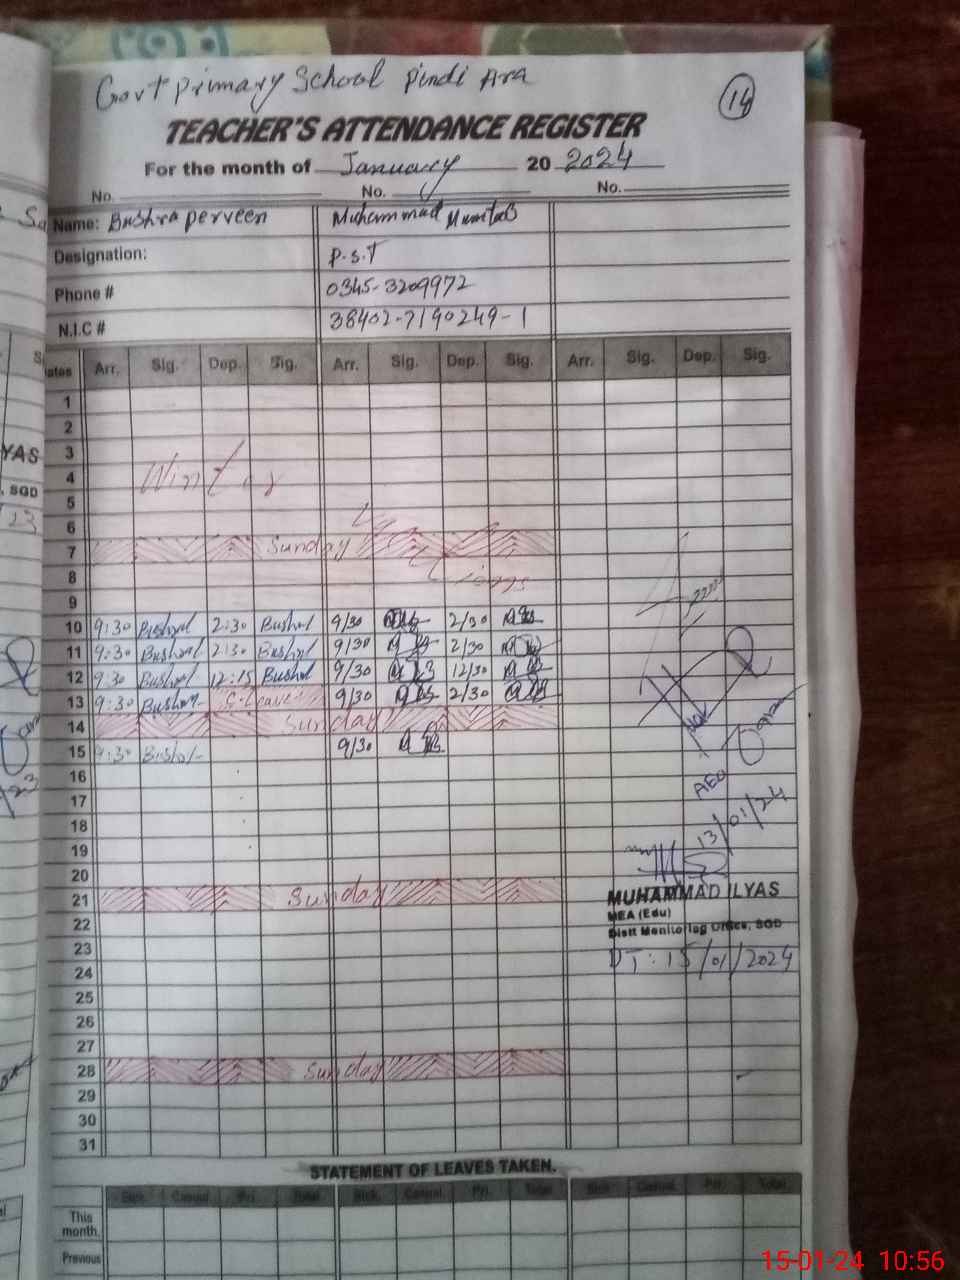 Govt Primary School Pindi Ara
14
TEACHER'S ATTENDANCE REGISTER
For the month of January 20 2024
No. No. No.
Name: Bushra perveen Muhammad Mumtaz
Designation: P.S.T
Phone # 0345-3209972
N.I.C # 38402-7190249-1
Dates Arr. Sig. Dep. Sig. Arr. Sig. Dep. Sig. Arr. Sig. Dep. Sig.
1
2
3
4 Winter
5
6
7 Sunday
8
9
10 9:30 Bushra 2:30 Bushra 9/30 2/30
11 9:30 Bushra 2:30 Bushra 9/30 2/30
12 9:30 Bushra 12:15 Bushra 9/30 12/30
13 9:30 Bushra Leave 9/30 2/30
14 Sunday
15 9:30 Bushra 9/30
16
17
18
19
20
21 Sunday
22
23
24
25
26
27
28 Sunday
29
30
31
AEO
13/01/24
MUHAMMAD ILYAS
MEA (Edu)
Distt Monitoring Office, SGD
DT: 15/01/2024
STATEMENT OF LEAVES TAKEN.
Sick. Casual. Pri. Total Sick. Casual. Pri. Total Sick. Casual. Pri. Total
This month.
Previous
YAS
, SGD
15-01-24 10:56